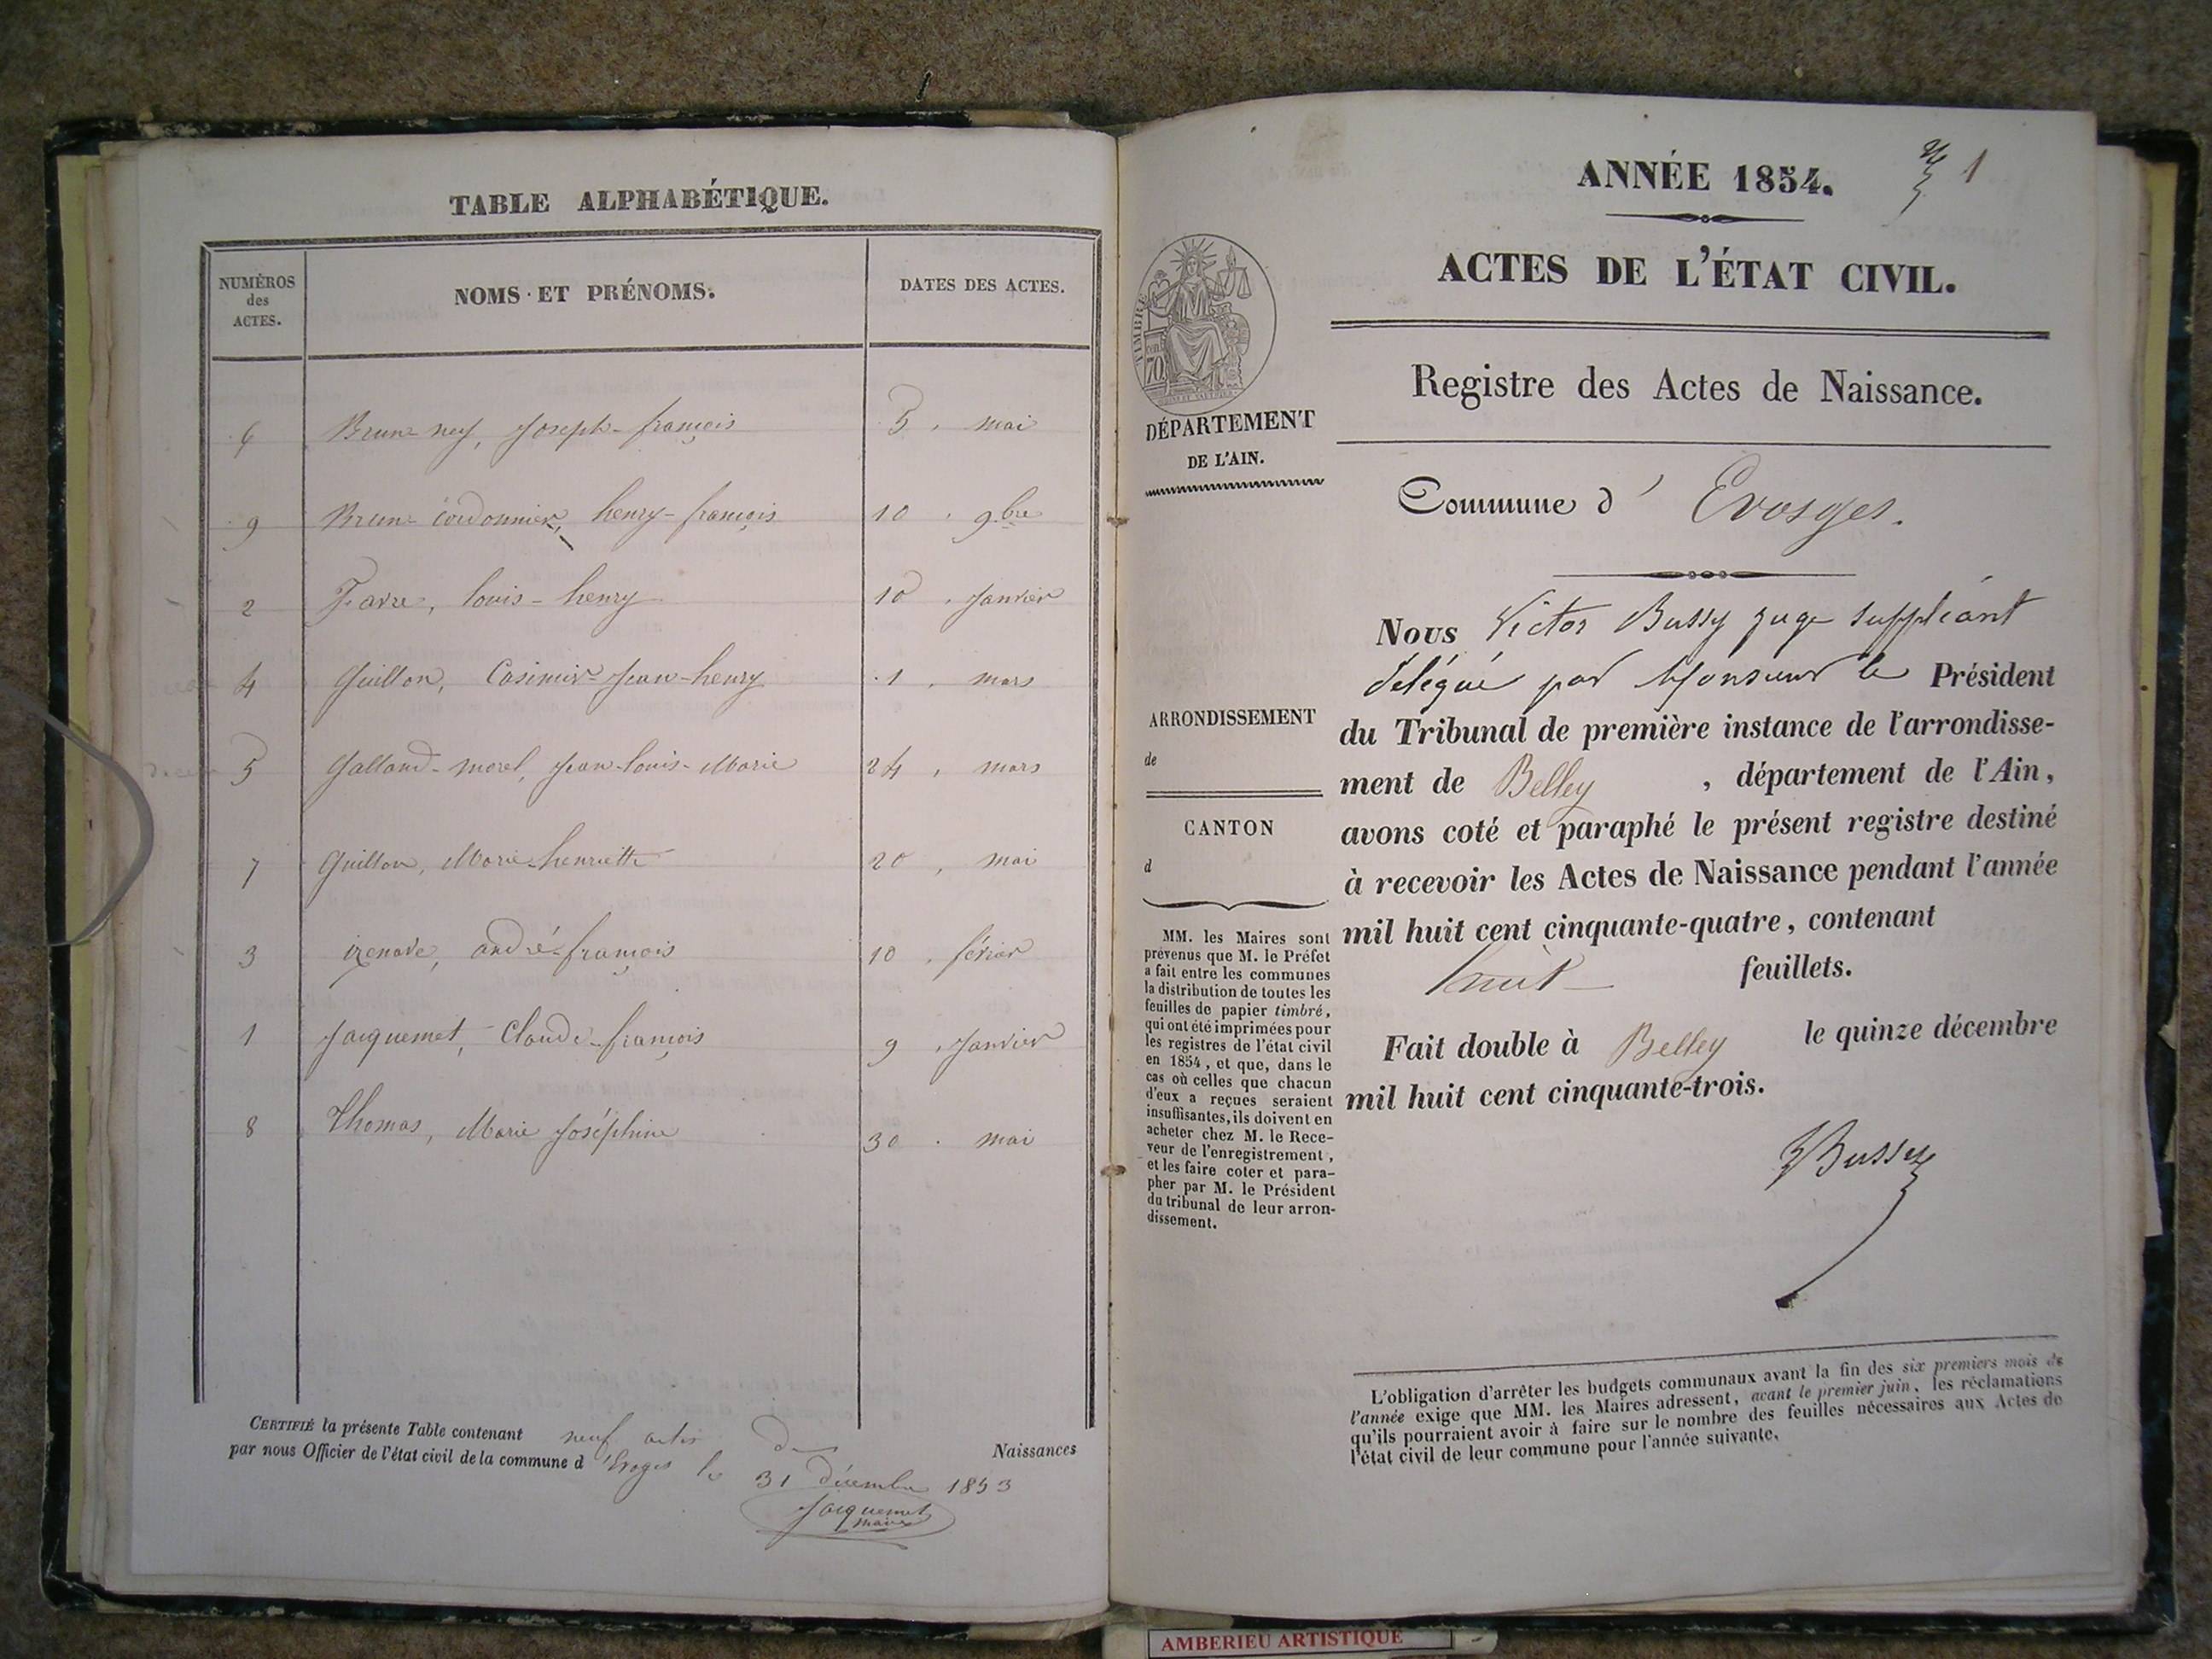 TABLE ALPHABÉTIQUE.
NUMÉROS
des
ACTES.
NOMS ET PRÉNOMS.
DATES DES ACTES.
6 Brun-ney, Joseph-françois 5, mai
9 Brun-Cordonnier, henry-françois 10, 9bre
2 Favre, louis-henry 10, Janvier
4 Guillon, Casimir-Jean-henry 1, mars
5 Galland-morel, Jean-louis-Marie 24, mars
7 Guillon, Marie-henriette 20, mai
3 izenave, andré-françois 10, février
1 Jacquemet, Claude-françois 9, Janvier
8 Thomas, Marie Joséphine 30. mai
CERTIFIÉ la présente Table contenant neuf actes de Naissances
par nous Officier de l'état civil de la commune d'Evoges le 31 décembre 1853
Jacquemet
maire
1
ANNÉE 1854.
ACTES DE L'ÉTAT CIVIL.
TIMBRE
70
Registre des Actes de Naissance.
DÉPARTEMENT
DE L'AIN.
Commune d' Evosges.
Nous Victor Bussy juge suppléant
délégué par Monsieur le Président
du Tribunal de première instance de l'arrondisse-
ment de Belley, département de l'Ain,
avons coté et paraphé le présent registre destiné
à recevoir les Actes de Naissance pendant l'année
mil huit cent cinquante-quatre, contenant
huit feuillets.
Fait double à Belley le quinze décembre
mil huit cent cinquante-trois.
VBussy
ARRONDISSEMENT
de
CANTON
d
MM. les Maires sont
prévenus que M. le Préfet
a fait entre les communes
la distribution de toutes les
feuilles de papier timbré,
qui ont été imprimées pour
les registres de l'état civil
en 1854, et que, dans le
cas où celles que chacun
d'eux a reçues seraient
insuffisantes, ils doivent en
acheter chez M. le Rece-
veur de l'enregistrement,
et les faire coter et para-
pher par M. le Président
du tribunal de leur arron-
dissement.
L'obligation d'arrêter les budgets communaux avant la fin des six premiers mois de
l'année exige que MM. les Maires adressent, avant le premier juin, les réclamations
qu'ils pourraient avoir à faire sur le nombre des feuilles nécessaires aux Actes de
l'état civil de leur commune pour l'année suivante.
AMBERIEU ARTISTIQUE